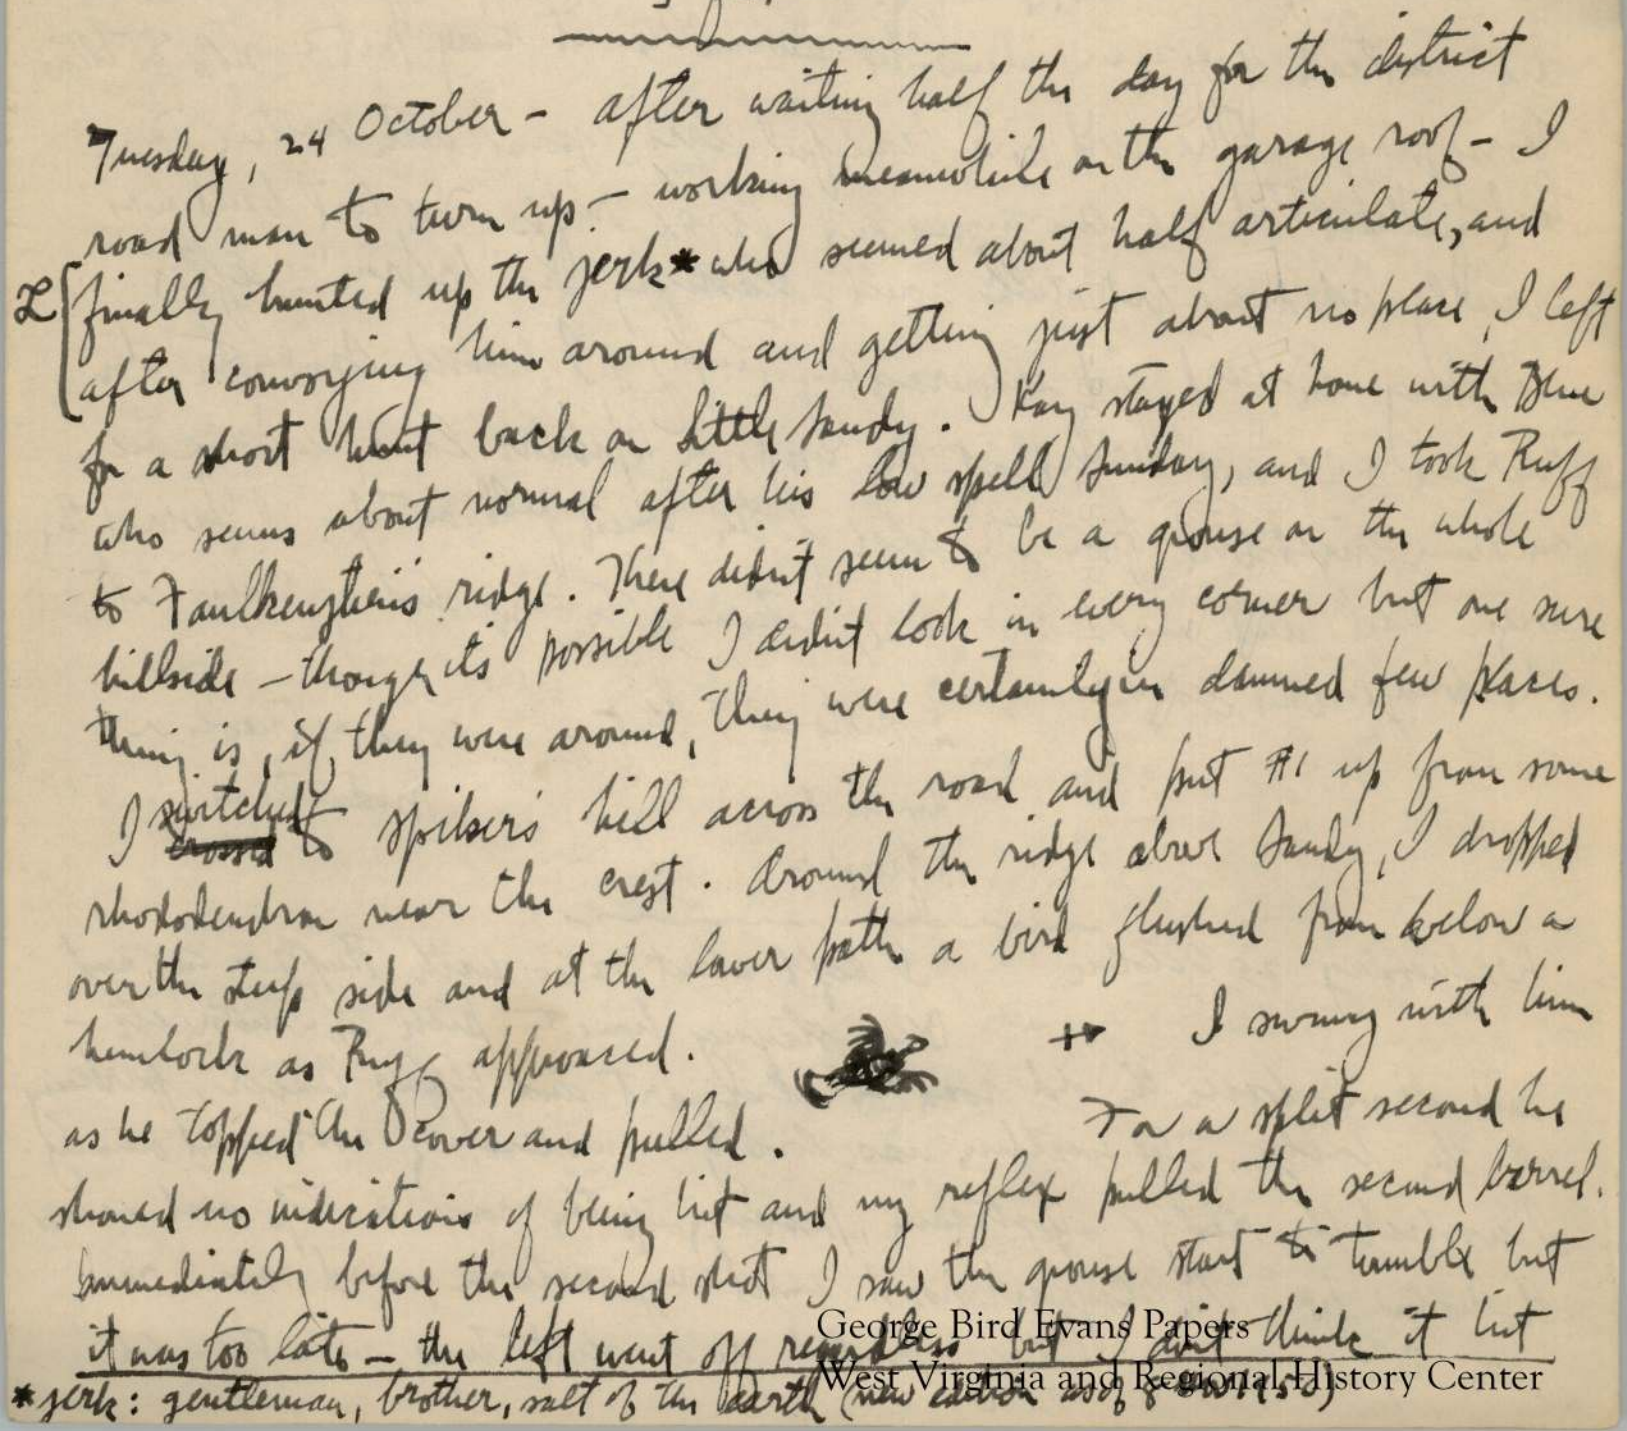 Tuesday, 24 October - after waiting half the day for the district
road man to turn up - working meanwhile on the garage roof - I
finally hunted up the jerk* who seemed about half articulate, and
after convoying him around and getting just about no place, I left
for a short hunt back on Little Sandy. Kay stayed at home with Blue
who seems about normal after his low spell Sunday, and I took Ruff
to Faulkenstein's ridge. There didn't seem to be a grouse on the whole
hillside - though its possible I didn't look in every corner but one sure
thing is, if they were around, they were certainly in damned few places.
I switched to Spiker's hill across the road and put #1 up from some
rhododendron near the crest. Around the ridge above Sandy, I dropped
over the steep side and at the lower path a bird flushed from below a
hemlock as Ruff approached. I swung with him
as he topped the cover and pulled. For a split second he
showed no indications of being hit and my reflex pulled the second barrel.
Immediately before the second shot I saw the grouse start to tumble but
it was too late - the left went off regardless but I don't think it hit
*jerk: gentleman, brother, salt of the earth (new
George Bird Evans Papers
West Virginia and Regional History Center